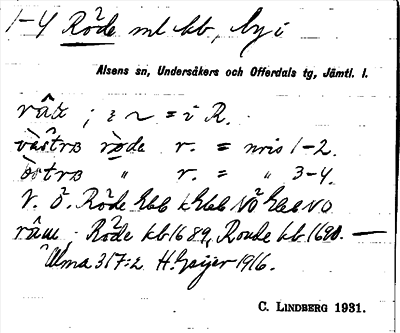 1-4 Röde ml kb, by i
Alsens sn, Undersåkers och Offerdals tg, Jämtl. l.
råɯ ; i ~ = i R.
västrɒ röde r. = nris 1-2.
östrɒ " r. = " 3-4.
V. Ö. Röde Ebb kEbb NÖ Ebb NO
råɯ. Röde kb 1689, Roude kb 1690. —
Alma 317:2 H. Geijer 1916.
C. LINDBERG 1931.